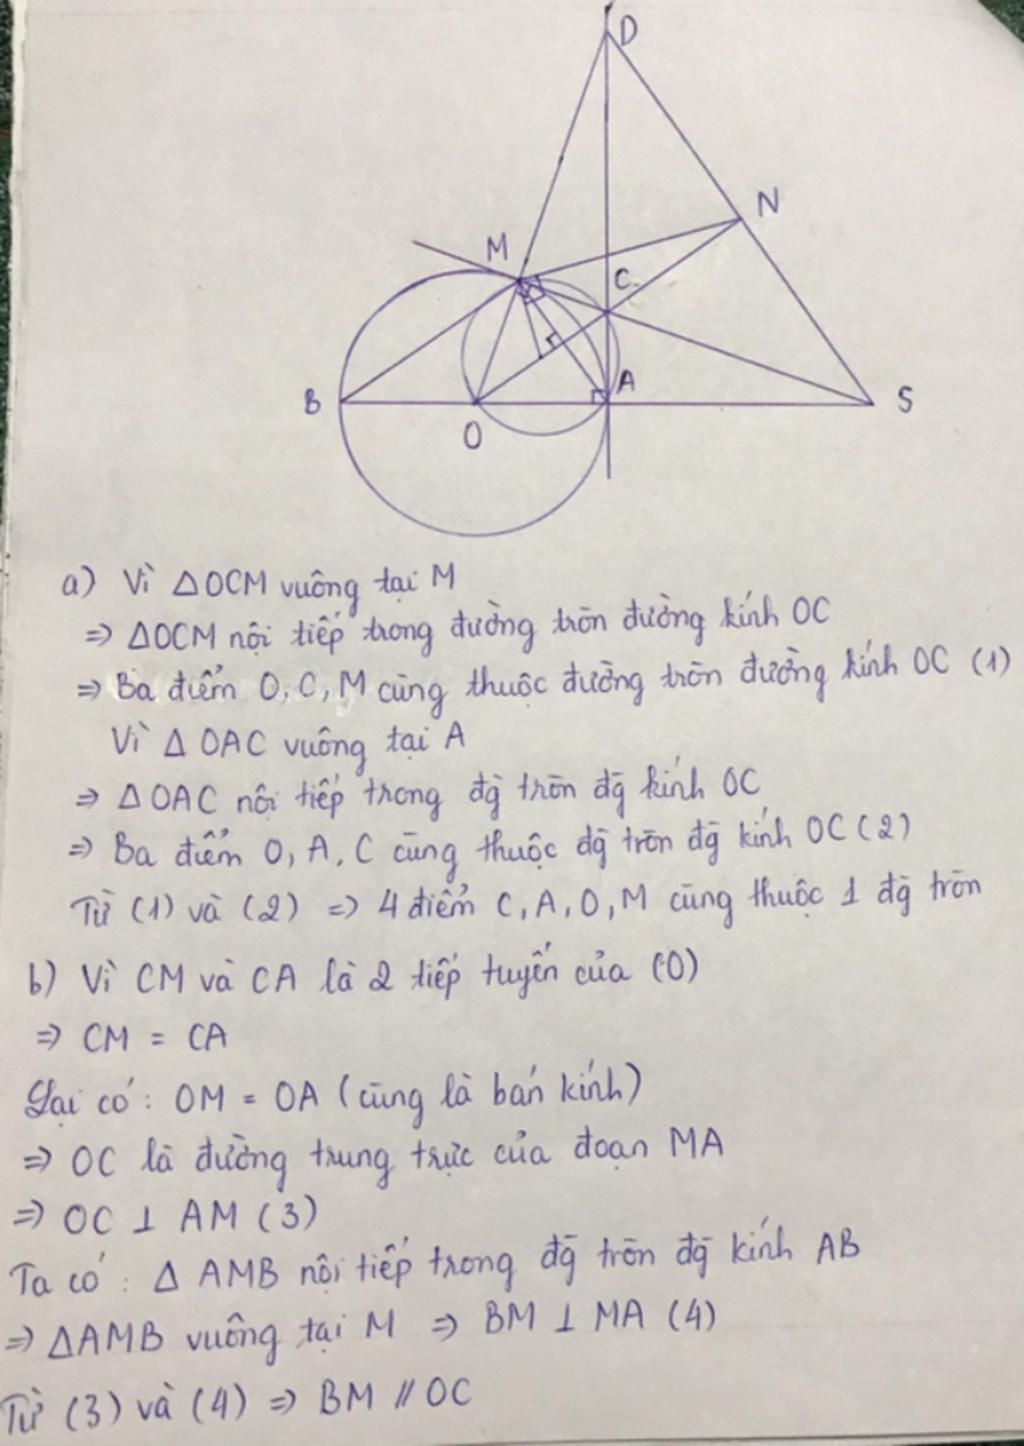 D
N
M
C
A
B
O
S
a) Vì ΔOCM vuông tại M
=> ΔOCM nội tiếp trong đường tròn đường kính OC
=> Ba điểm O, C, M cùng thuộc đường tròn đường kính OC (1)
Vì Δ OAC vuông tại A
=> ΔOAC nội tiếp trong đg tròn đg kính OC
=> Ba điểm O, A, C cùng thuộc đg tròn đg kính OC (2)
Từ (1) và (2) => 4 điểm C, A, O, M cùng thuộc 1 đg tròn
b) Vì CM và CA là 2 tiếp tuyến của (O)
=> CM = CA
Lại có: OM = OA (cùng là bán kính)
=> OC là đường trung trực của đoạn MA
=> OC ⊥ AM (3)
Ta có: Δ AMB nội tiếp trong đg tròn đg kính AB
=> ΔAMB vuông tại M => BM ⊥ MA (4)
Từ (3) và (4) => BM // OC